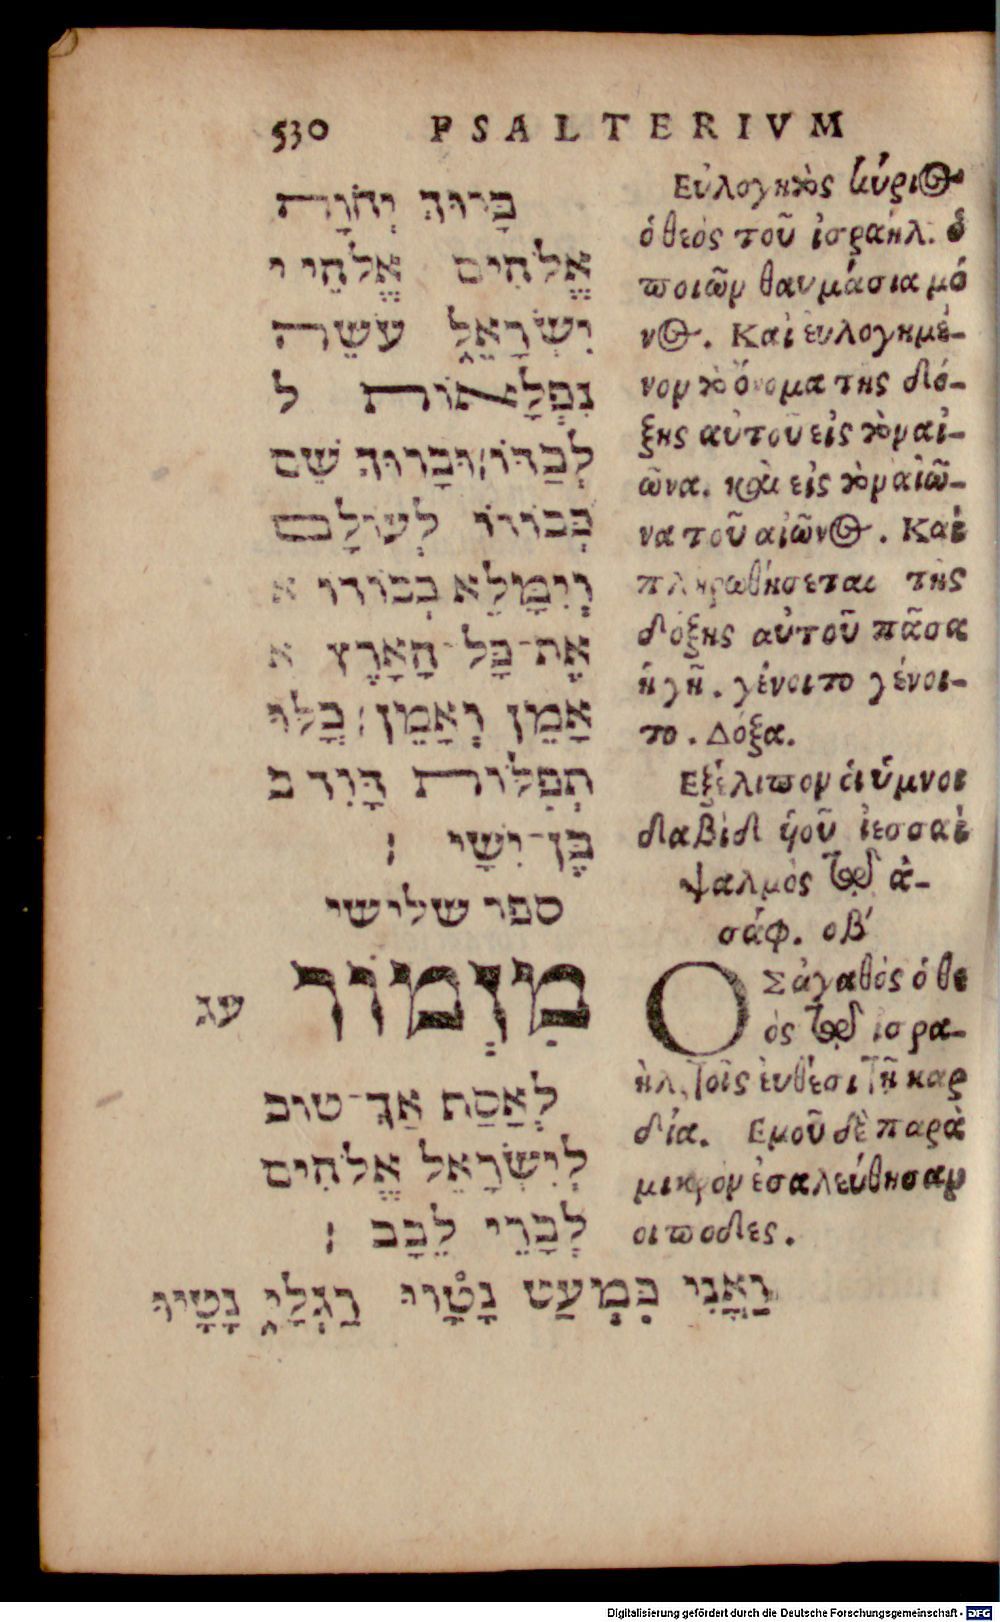 530 PSALTERIVM
בָּרוּךְ יְהֹוָה
אֱלֹהִים אֱלֹהֵי י
יִשְׂרָאֵל עֹשֵׂה
נִפְלָאוֹת ל
לְבַדּוֹ׃ וּבָרוּךְ שֵׁם
כְּבוֹדוֹ לְעוֹלָם
וְיִמָּלֵא כְבוֹדוֹ א
אֶת־כָּל־הָאָרֶץ א
אָמֵן וְאָמֵן׃ כָּלּוּ
תְפִלּוֹת דָּוִד ב
בֶּן־יִשָׁי ׃
ספר שלישי
מִזְמוֹר עג
לְאָסַף אַךְ־טוֹב
לְיִשְׂרָאֵל אֱלֹהִים
לְבָרֵי לֵבָב ׃
וַאֲנִי כִּמְעַט נָטָוּי רַגְלָי נָטָיוּ
Εὐλογητὸς κύριος
ὁ θεὸς τοῦ ἰσραήλ. ὁ
ποιῶν θαυμάσια μό
νος. Καὶ ἐυλογημέ-
νον τὸ ὄνομα τῆς δό-
ξης αὐτοῦ εἰς τὸν αἰ-
ῶνα. καὶ εἰς τὸν αἰῶ-
να τοῦ αἰῶνος. Καὶ
πληρωθήσεται τῆς
δόξης αὐτοῦ πᾶσα
ἡ γῆ. γένοιτο γένοι-
το. Δόξα.
Εξέλιπον ὁι ὑμνοι
δαβὶδ ὑοῦ ἰεσσαὶ
ψαλμὸς τῷ ἀ-
σάφ. οβ´
ΟΣ ἀγαθὸς ὁ θε
ὸς τῷ ἰσρα-
ὴλ, τοῖς ἐυθέσι τῇ καρ
δία. Εμοῦ δὲ παρὰ
μικρὸν ἐσαλεύθησαν
οι ποδες.
Digitalisierung gefördert durch die Deutsche Forschungsgemeinschaft - DFG